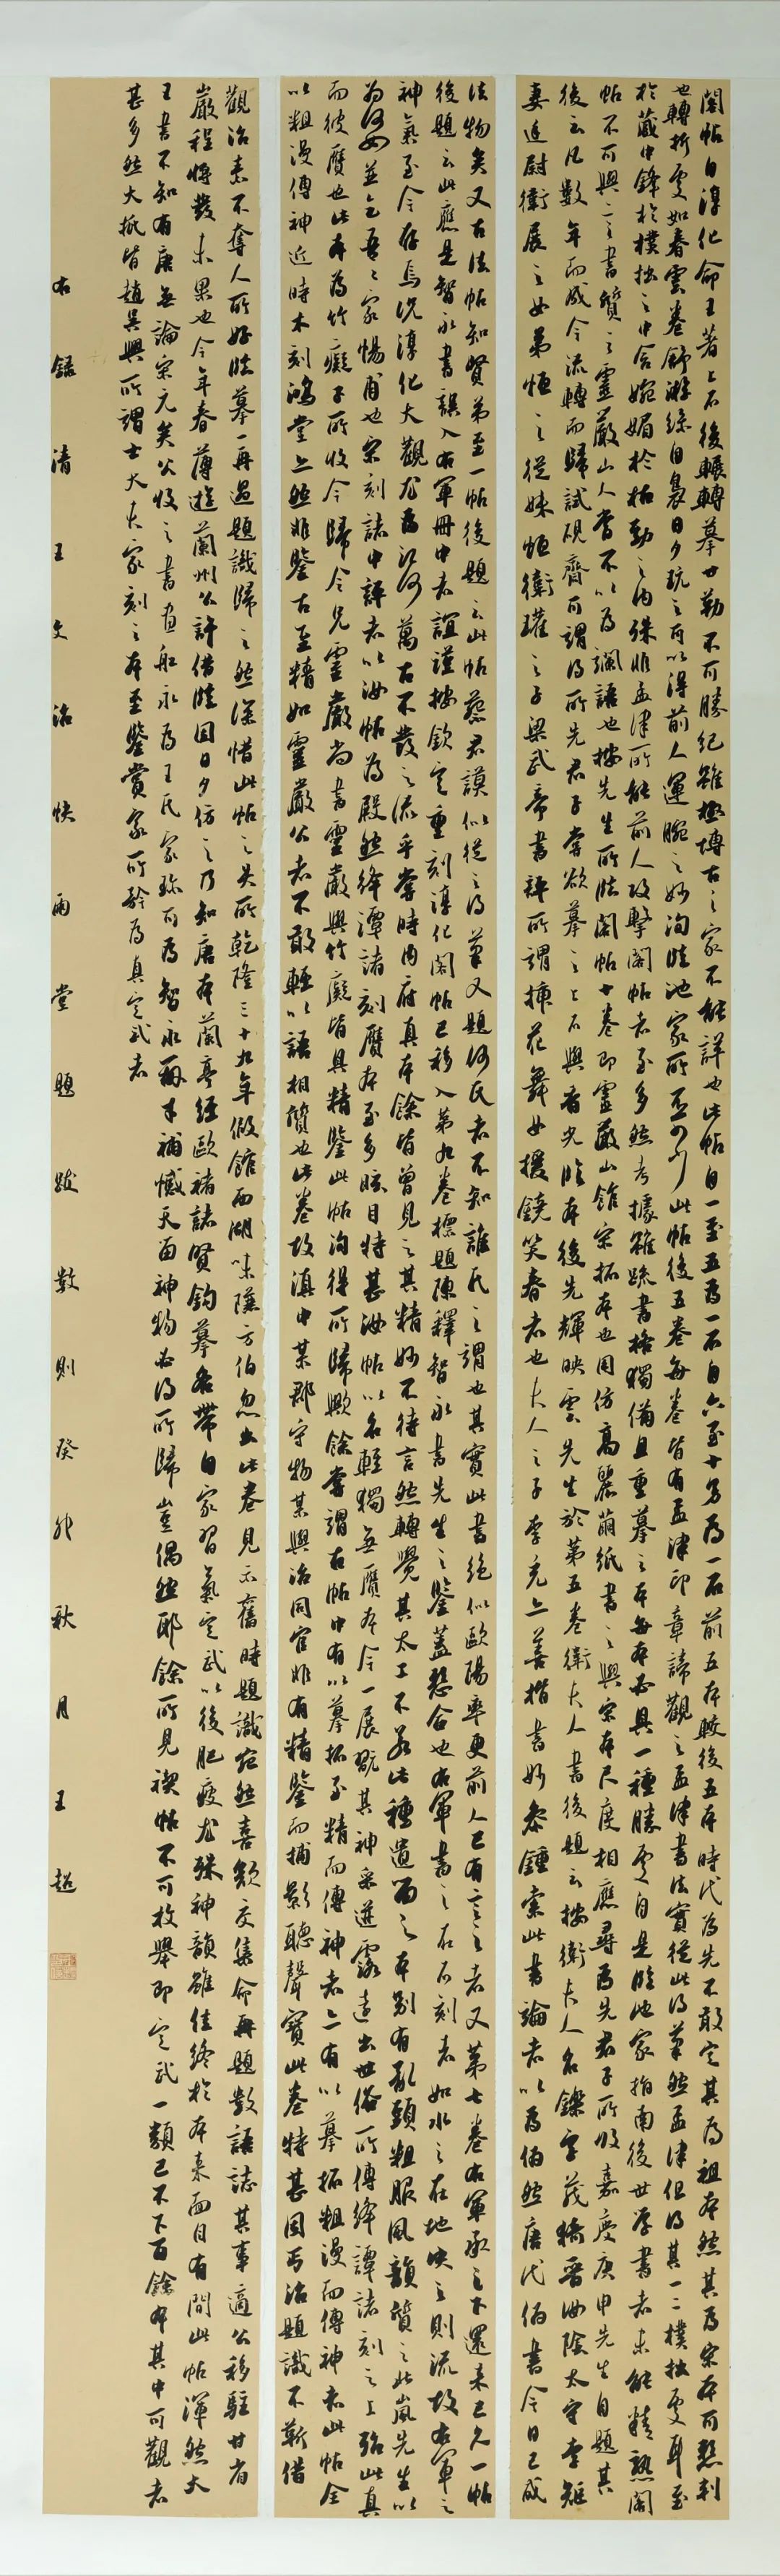 閣帖自淳化命王著上石後輾轉摹廿勒不可勝紀雖極博古之家不能詳也此帖自一至五為一石自六至十另為一石前五本較後五本時代為先不敢定其為祖本然其為宋本可懸判
也轉折處如春雲卷舒游絲自裊日夕玩之可以得前人運腕之妙洵臨池家所 此帖後五卷每卷皆有孟津印章諦觀之孟津書法實從此得筆然孟津但得其一二樸拙處耳至
於藏中鋒於樸拙之中含婉媚於枯勁之內殊非孟津所能前人攻擊閣帖者至多然考據雖疏書格獨備且重摹之本每本必具一種勝處自是臨池家指南後世學書者未能精熟閣
帖不可與之書質之靈巖山人當不以為讕語也按先生所臨閣帖十卷即靈巖山館宋拓本也用仿高麗繭紙書之與宋本尺度相應尋為先君子所收嘉慶庚申先生自題其
後云凡數年而成今流轉而歸試硯齋可謂得所先君子嘗欲摹之上石與香光臨本後先輝映云先生於第五卷衛夫人書後題云按衛夫人名鑠字茂猗晉汝陰太守李矩
妻廷尉衛展之女弟恒之從妹恒衛瓘之子梁武帝書評所謂插花舞女援鏡笑春者也夫人之子李充亦善楷書妙參鍾索此書論者以為偽然唐代偽書今日已成
法物矣又古法帖知賢弟至一帖後題云此帖蔡君謨似從之得筆又題何氏者不知誰氏之謂也其實此書絕似歐陽率更前人已有言之者又第七卷右軍承之不還來已久一帖
後題云此應是智永書誤入右軍冊中者誼謹按欽定重刻淳化閣帖已移入第九卷標題陳釋智永書先生之鑒蓋懸合也右軍書之在石刻者如水之在地決之則流故右軍之
神氣至今存焉況淳化大觀尤為江河萬古不廢之流乎嘗時內府真本餘皆曾見之其精妙不待言然轉覺其太工不若此種遺留之本別有亂頭粗服風韻質之此嵐先生以
為何如並乞吾家惕甫也宋刻誌中評者以汝帖為殿然絳潭諸刻贗本至多眩目特甚汝帖以名輕獨無贗本今一展翫其神采遒露遠出世俗所傳絳譚諸刻之上殆此真
而彼贗也此本為竹癡子所收今歸令兄靈巖尚書靈巖與竹癡皆具精鑒此帖洵得所歸歟餘嘗謂古帖中有以摹拓至精而傳神者亦有以摹拓粗漫而傳神者此帖全
以粗漫傳神近時木刻鴻堂亦然非鑒古至精如靈巖公者不敢輕以語相質也此卷故滇中某郡守物某與治同官非有精鑒而捕影聽聲寶此卷特甚因丐治題識不靳借
觀治素不奪人所好臨摹一再過題識歸之然深惜此帖之失所乾隆三十九年假館西湖味蘐方伯忽出此卷見示舊時題識宛然喜歎交集命再題數語誌其事適公移駐甘省
嚴程悔發未果也今年春薄遊蘭州公許借臨因日夕仿之乃知唐本蘭亭經歐褚諸賢鈎摹各帶自家習氣定武以後肥瘦尤殊神韻雖佳終於本來面目有間此帖渾然大
王書不知有唐無論宋元矣公收之書畫船永為王氏家珍可為智永禪師補憾天留神物必得所歸豈偶然耶餘所見禊帖不可枚舉即定武一類已不下百餘本其中可觀者
甚多然大抵皆趙吳興所謂士大夫家刻之本至鑒賞家所矜為真定武者
右錄清王文治快雨堂題跋數則癸卯秋月王超